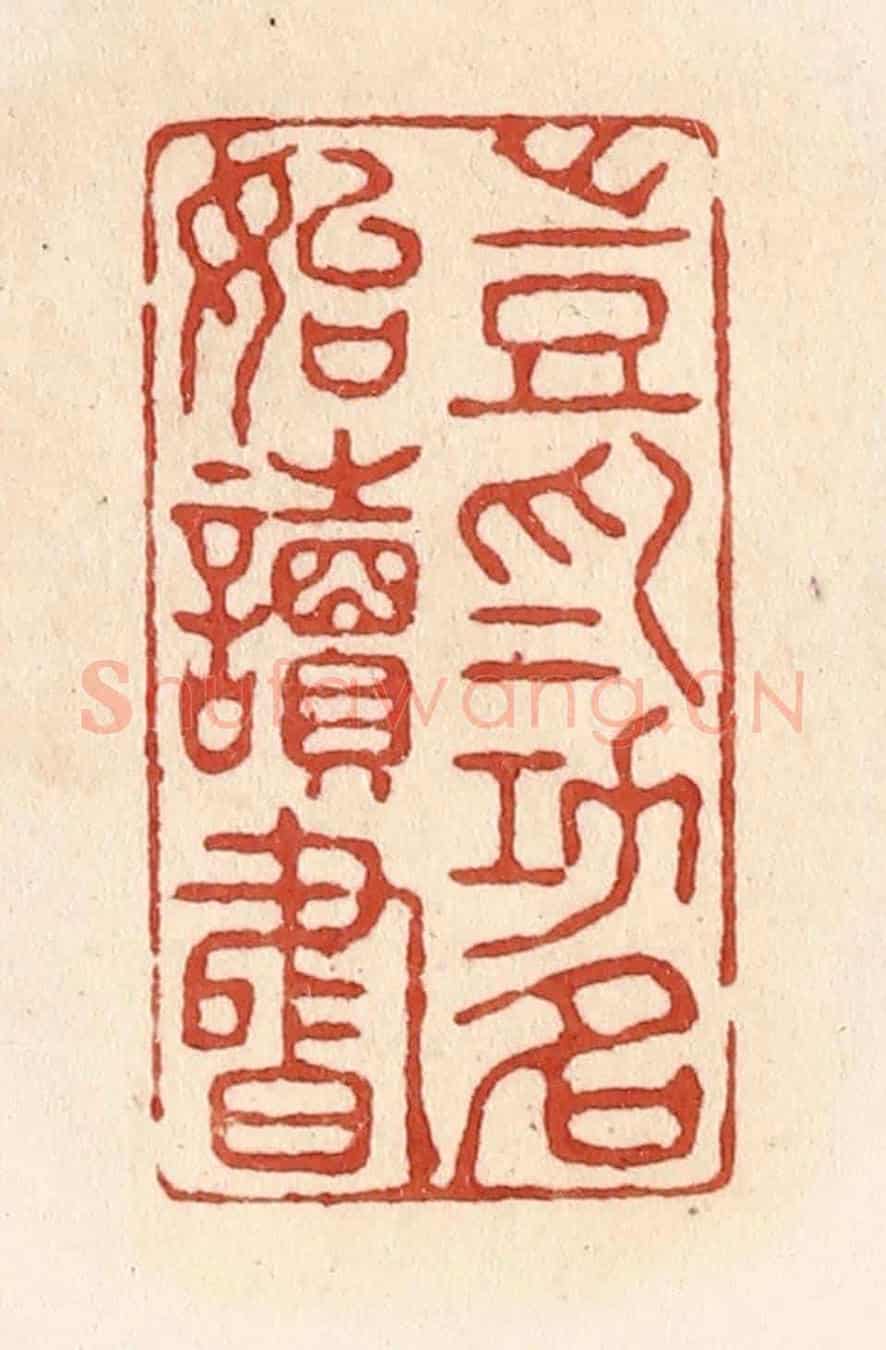 豈爲功名
始讀書
Shufawang.CN